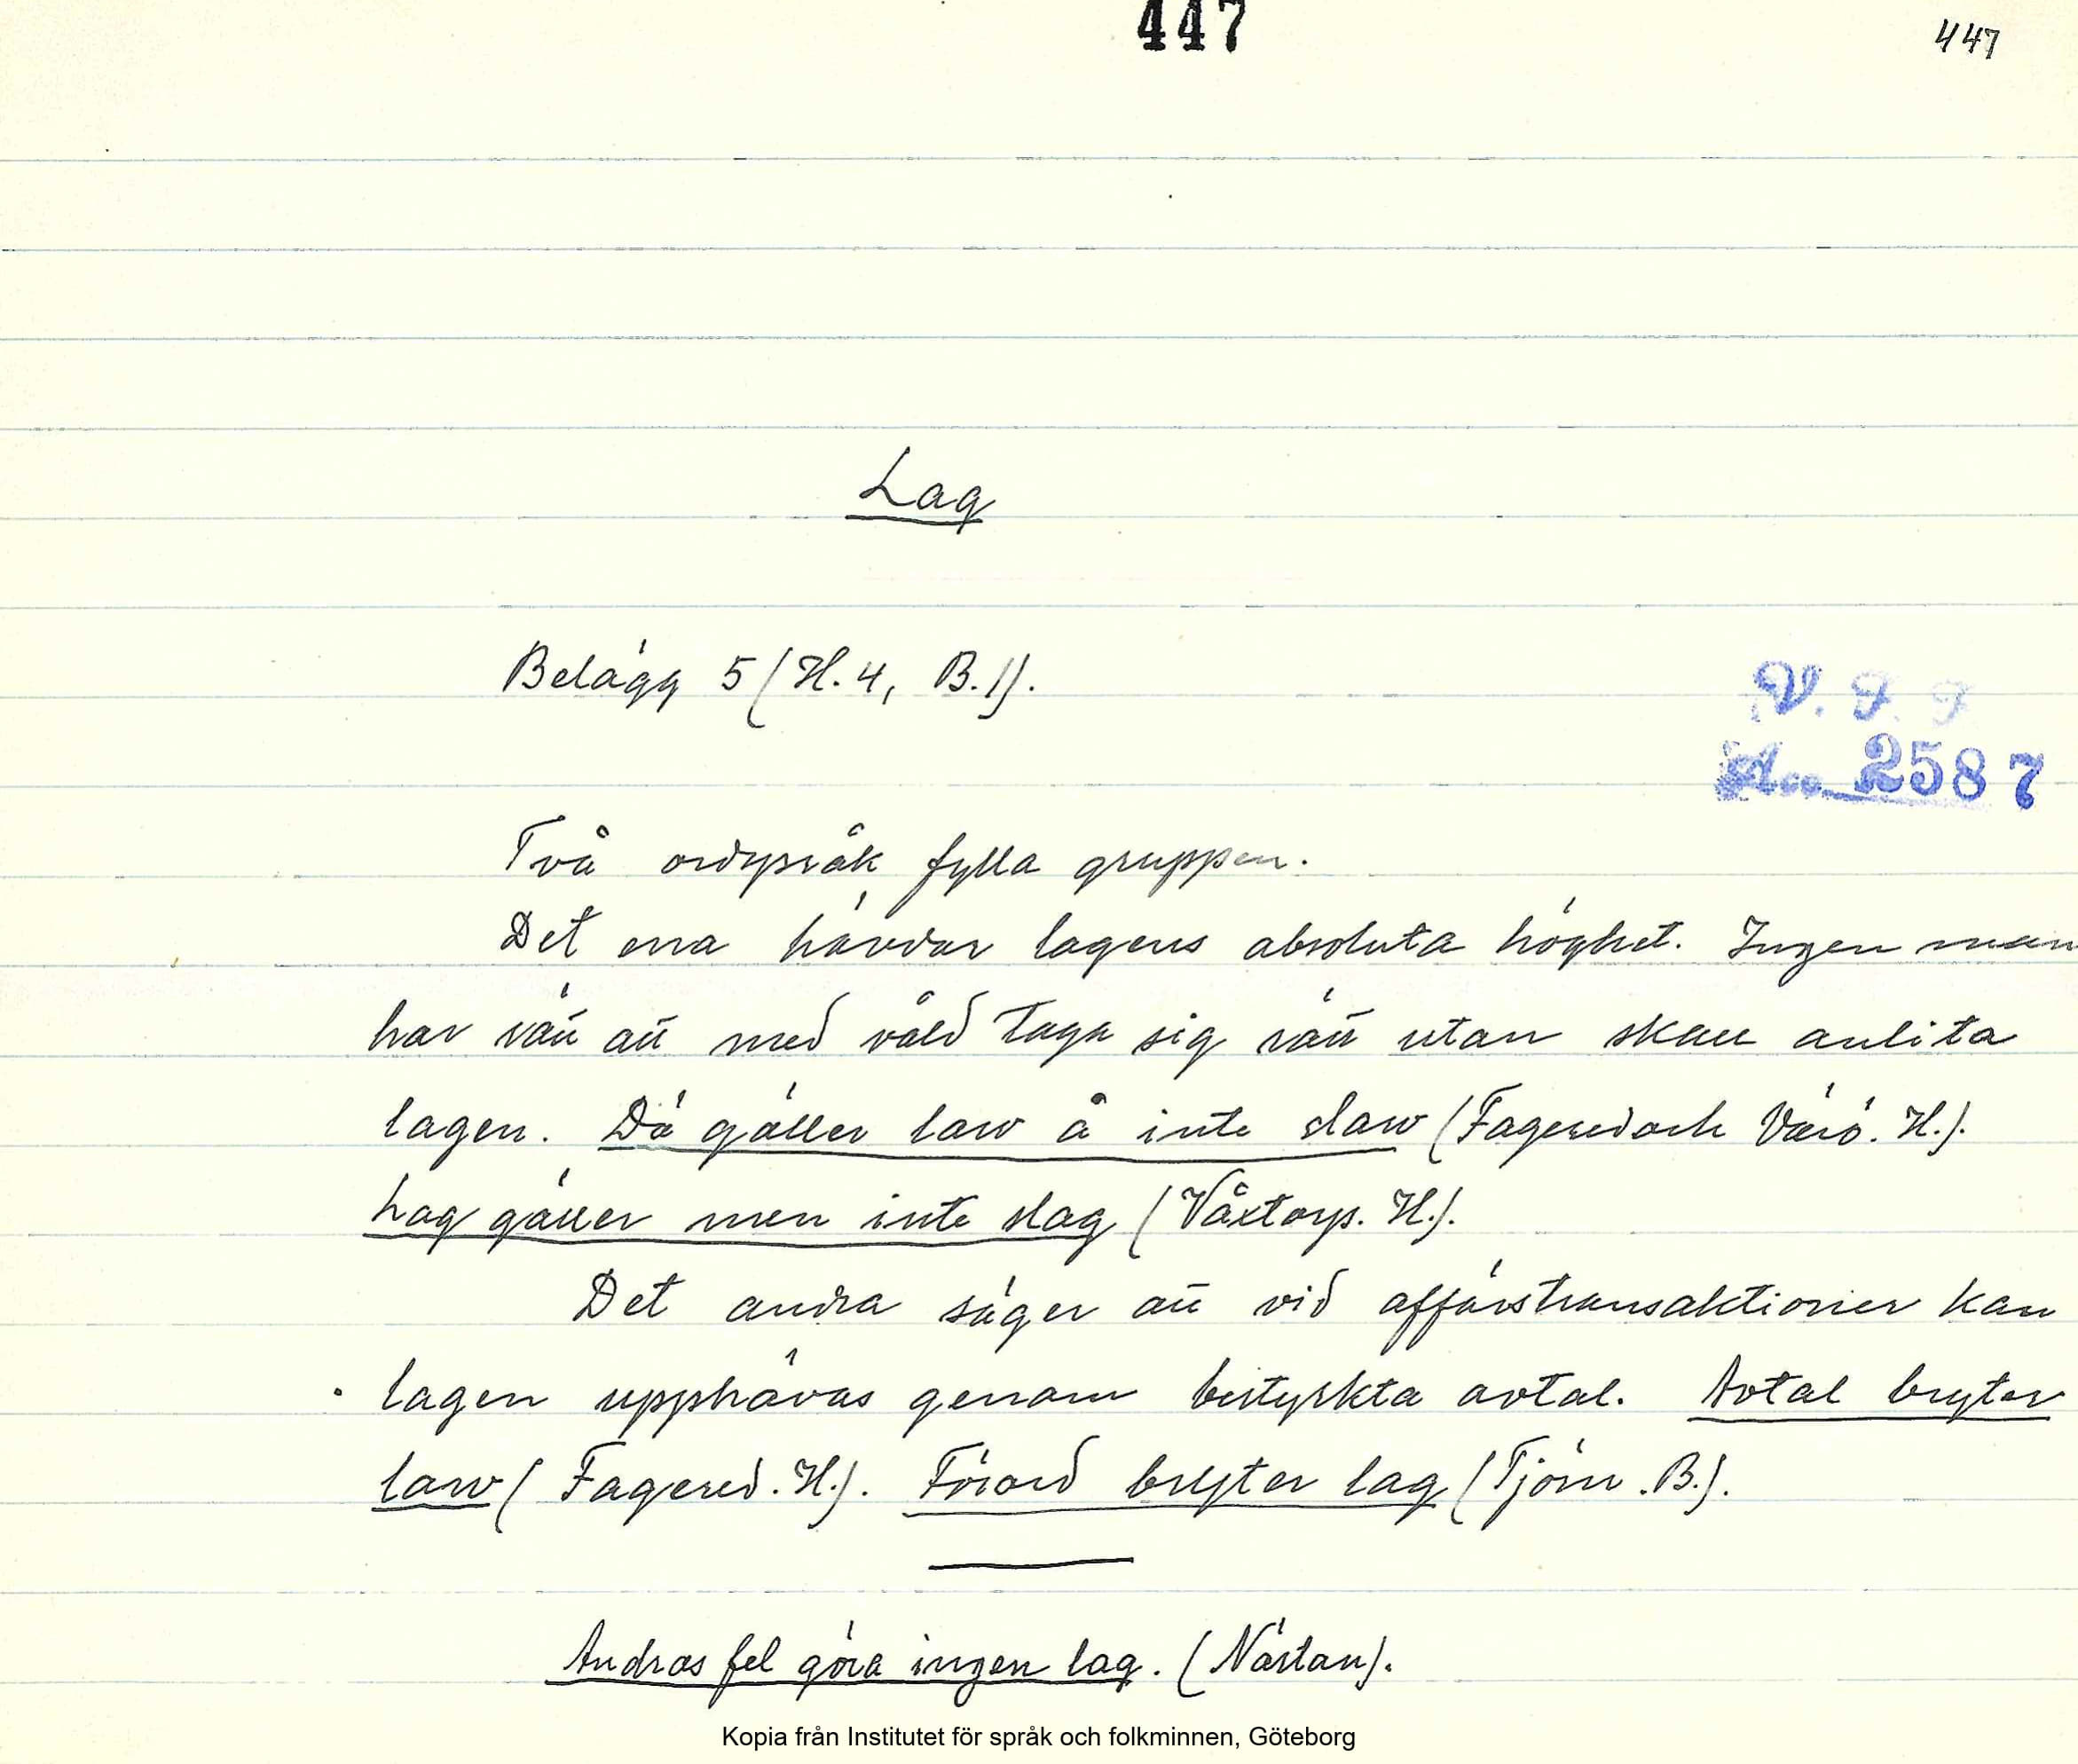 447
447
Lag
Belägg 5 (H. 4, B. 1).
V. F. F
Acc. 2587
Två ordspråk fylla gruppen.
Det ena hävdar lagens absoluta höghet. Ingen man
har rätt att med våld taga sig rätt utan skall anlita
lagen. Dä gäller law å inte slaw (Fagered och Värö. H.).
Lag gäller men inte slag (Våxtorp. H.).
Det andra säger att vid affärstransaktioner kan
lagen upphävas genom bestyrkta avtal. Avtal bryter
law (Fagered. H.). Förord bryter lag (Tjörn. B.).
Andras fel göra ingen lag. (Nästan).
Kopia från Institutet för språk och folkminnen, Göteborg